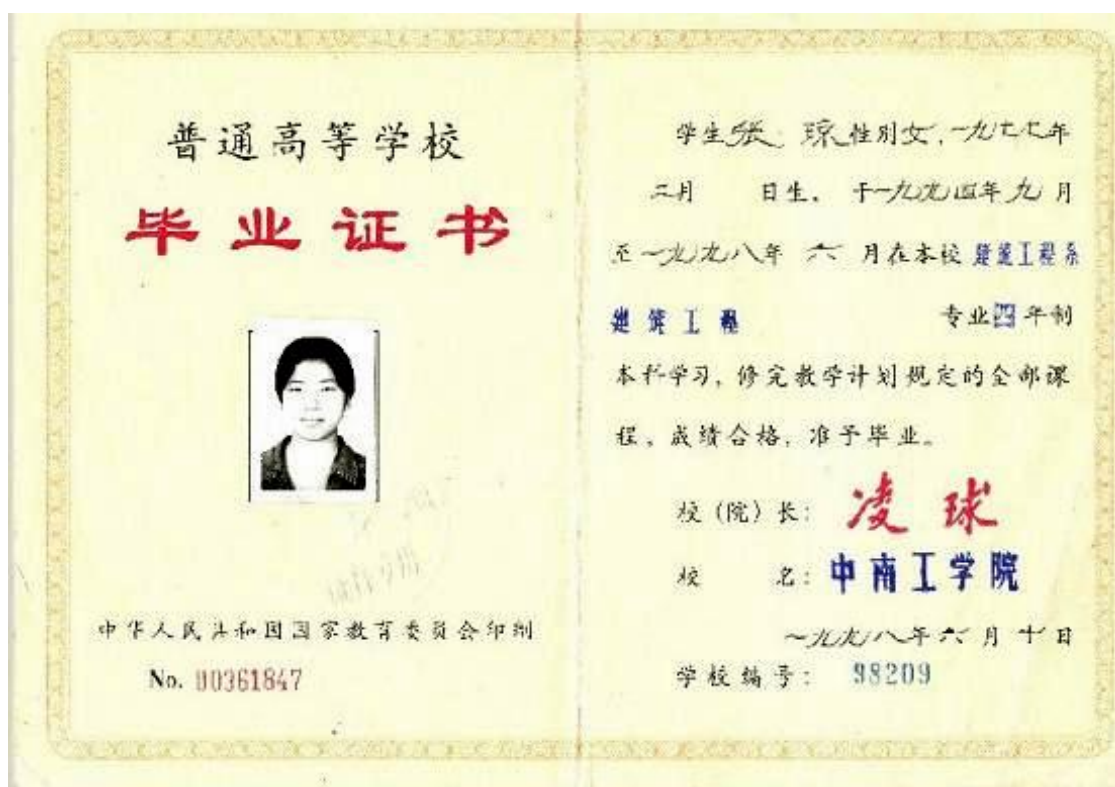 普通高等学校
毕业证书
中华人民共和国国家教育委员会印制
No. 00361847
学生张 琼性别女,一九七七年
二月 日生,于一九九四年九月
至一九九八年 六 月在本校建筑工程系
建筑工程 专业四年制
本科学习,修完教学计划规定的全部课
程,成绩合格,准予毕业。
校(院)长:凌球
校 名:中南工学院
一九九八年六月十日
学校编号: 98209